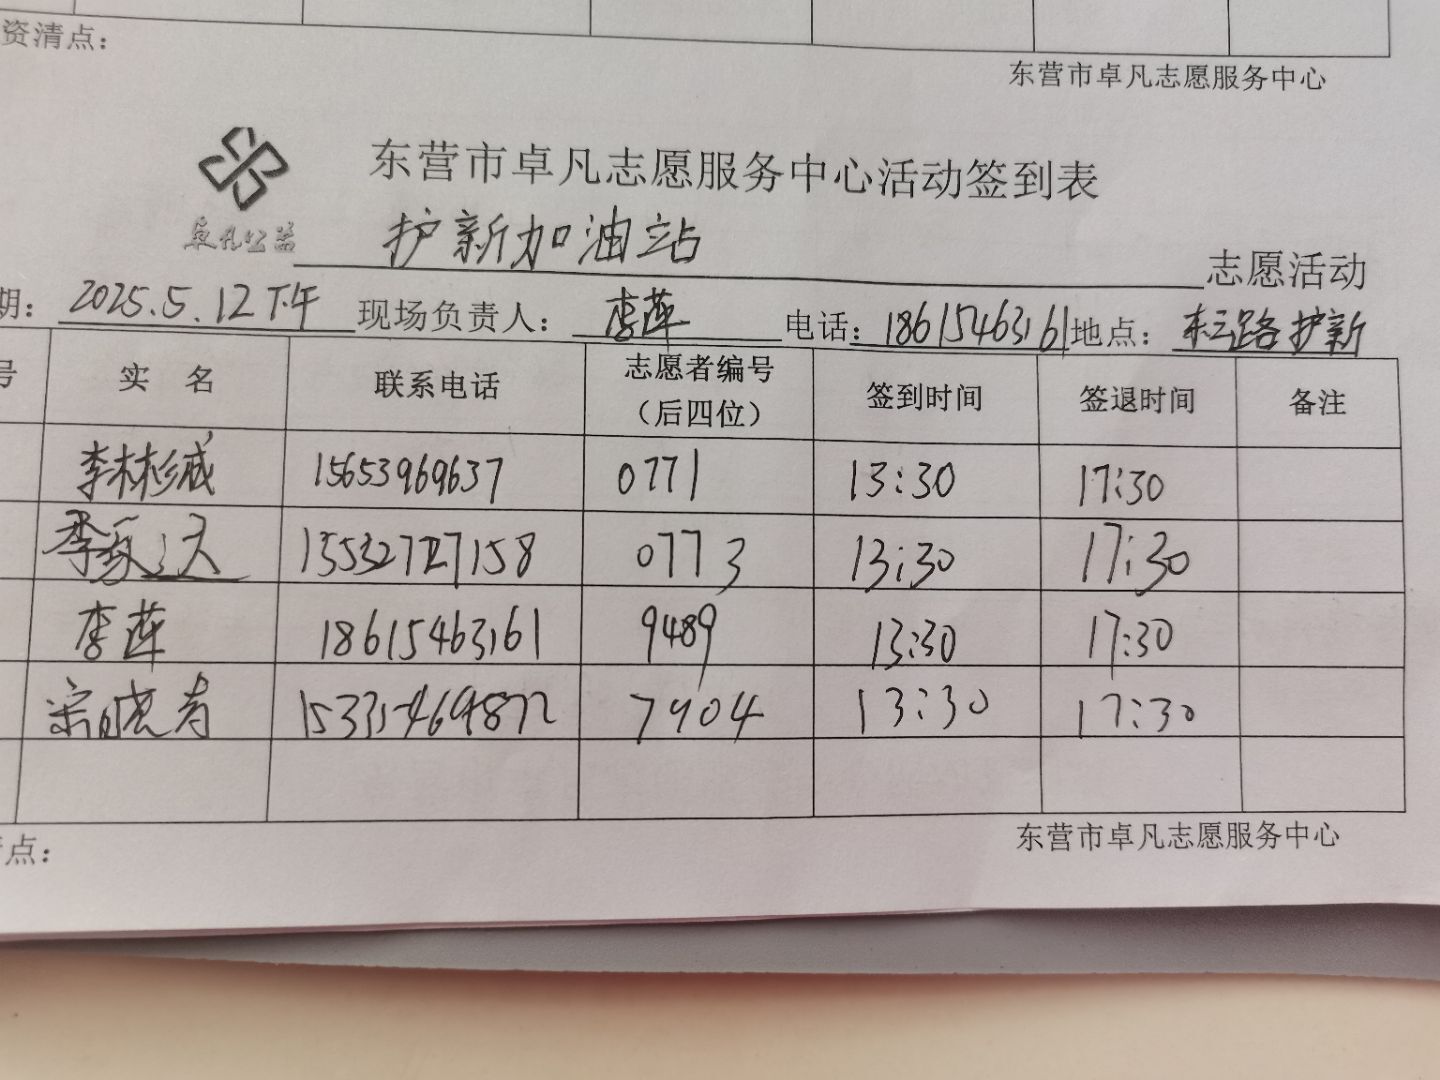 资清点：
东营市卓凡志愿服务中心
东营市卓凡志愿服务中心活动签到表
卓凡公益
护新加油站 志愿活动
期： 2025.5.12下午 现场负责人： 李莲 电话： 18615463161 地点： 东三路护新
号 实 名 联系电话 志愿者编号（后四位） 签到时间 签退时间 备注
李林彬成 15653969637 0771 13:30 17:30
李 天 15532727158 0773 13:30 17:30
李莲 18615463161 9489 13:30 17:30
宗晓寿 7904 13:30 17:30
清点：
东营市卓凡志愿服务中心